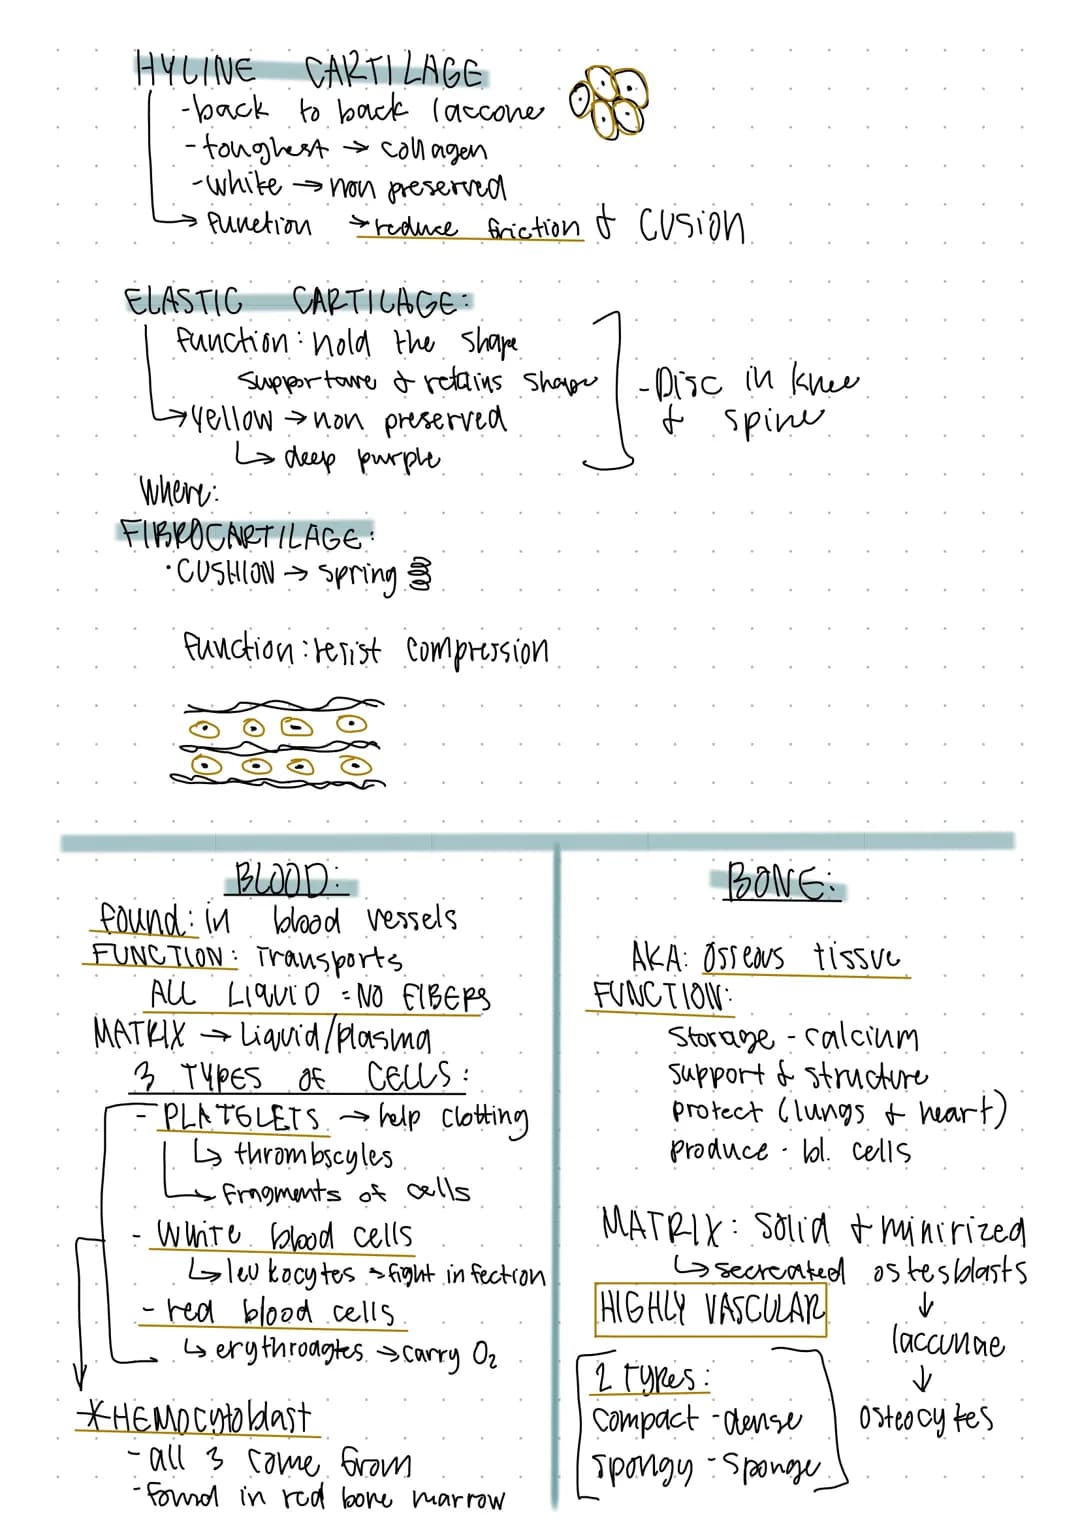 HYLINE CARTILAGE
-back to back laccone
-toughest → collagen
-white → non preserved
→ function → reduce friction & cusion
ELASTIC CARTILAGE:
function: hold the shape
supportave & retains shape
→ yellow → non preserved
↳ deep purple
- Disc in knee
& spine
Where:
FIBROCARTILAGE:
·CUSHION → spring
function: resist compression
BLOOD:
found: in blood vessels
FUNCTION: Transports
ALL LIQUID = NO FIBERS
MATRIX → Liquid/plasma
3 TYPES OF CELLS:
- PLATELETS → help clotting
↳ thrombscyles
→ Fragments of cells
- White blood cells
↳ leukocytes → fight infection
- red blood cells
↳ erythroagtes → carry O₂
*HEMOCytoblast
- all 3 come from
- found in red bone marrow
BONE:
AKA: Osseous tissue
FUNCTION:
Storage - calcium
support & structure
protect (lungs & heart)
produce - bl. cells
MATRIX: Solid + minirized
↳ secreated ostesblasts
↓
laccunae
↓
osteocytes
HIGHLY VASCULAR
2 Types:
compact - dense
spongy - sponge